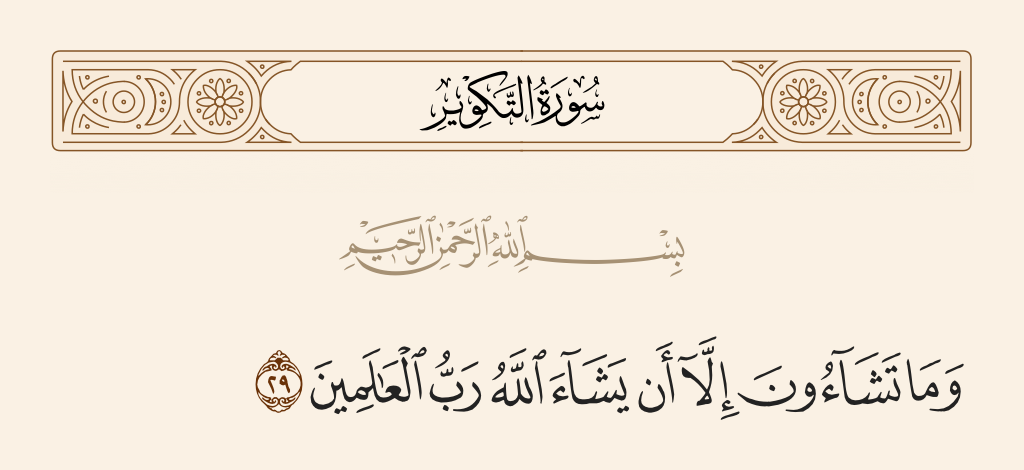 سُورَةُ التَّكْوِيرِ
بِسْمِ ٱللَّهِ ٱلرَّحْمَٰنِ ٱلرَّحِيمِ
وَمَا تَشَآءُونَ إِلَّآ أَن يَشَآءَ ٱللَّهُ رَبُّ ٱلْعَٰلَمِينَ ٢٩